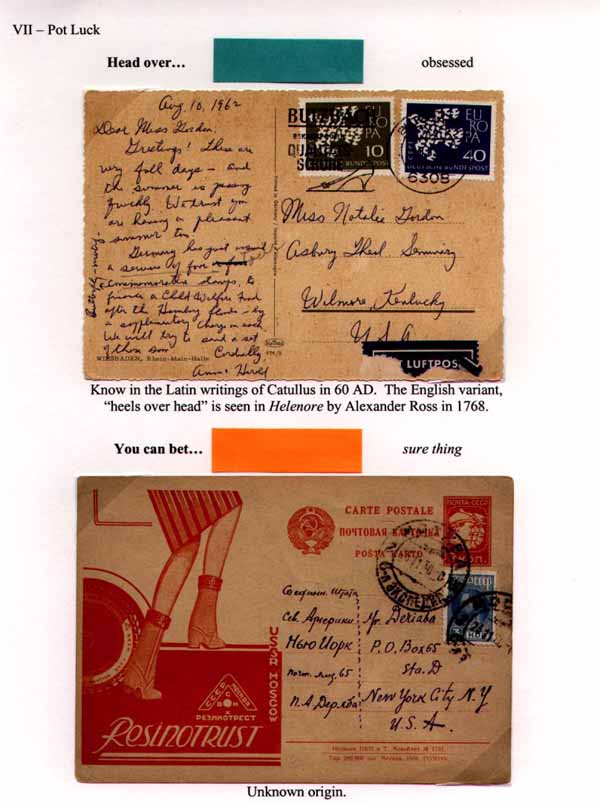 VII – Pot Luck
Head over… obsessed
Aug. 10, 1962
Dear Miss Gordon:
Greetings! These are
very full days – and
the summer is passing
quickly. We trust you
are having a pleasant
summer too.
Germany has just issued
a service of four
commemorative stamps, to
finance a Child Welfare Fund
after the Hamburg floods – by
a supplementary charge on each.
We will try to send a set
of them soon.
Cordially
WIESBADEN, Rhein-Main-Halle
EUROPA
10
DEUTSCHE BUNDESPOST
EUROPA
40
DEUTSCHE BUNDESPOST
BUTZBACH
6308
Miss Natalie Gordon
Asbury Theol. Seminary
Wilmore, Kentucky
U.S.A.
LUFTPOST
Know in the Latin writings of Catullus in 60 AD. The English variant,
“heels over head” is seen in Helenore by Alexander Ross in 1768.
You can bet… sure thing
CARTE POSTALE
ПОЧТОВАЯ КАРТОЧКА
POŜTA KARTO
ПОЧТА СССР
USSR MOSCOW
СССР
МОСКВА
РЕЗИНОТРЕСТ
RESINOTRUST
Соедин. Штати
Сев. Америки
Нью Йорк
почт. ящ. 65
П. А. Деряба
Mr. Deriaba
P. O. Box 65
Sta. D
New York City N.Y
U.S.A.
Unknown origin.